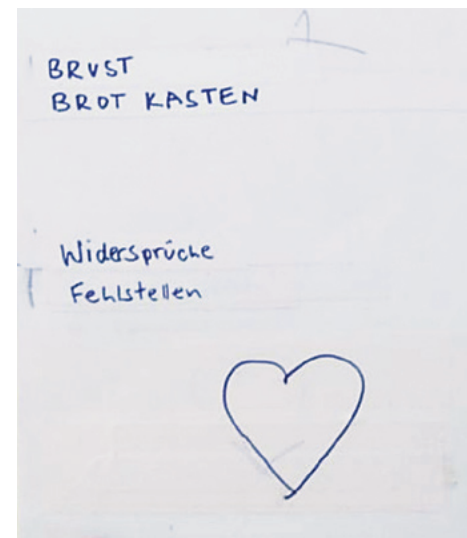 BRUST
BROT KASTEN
Widersprüche
Fehlstellen